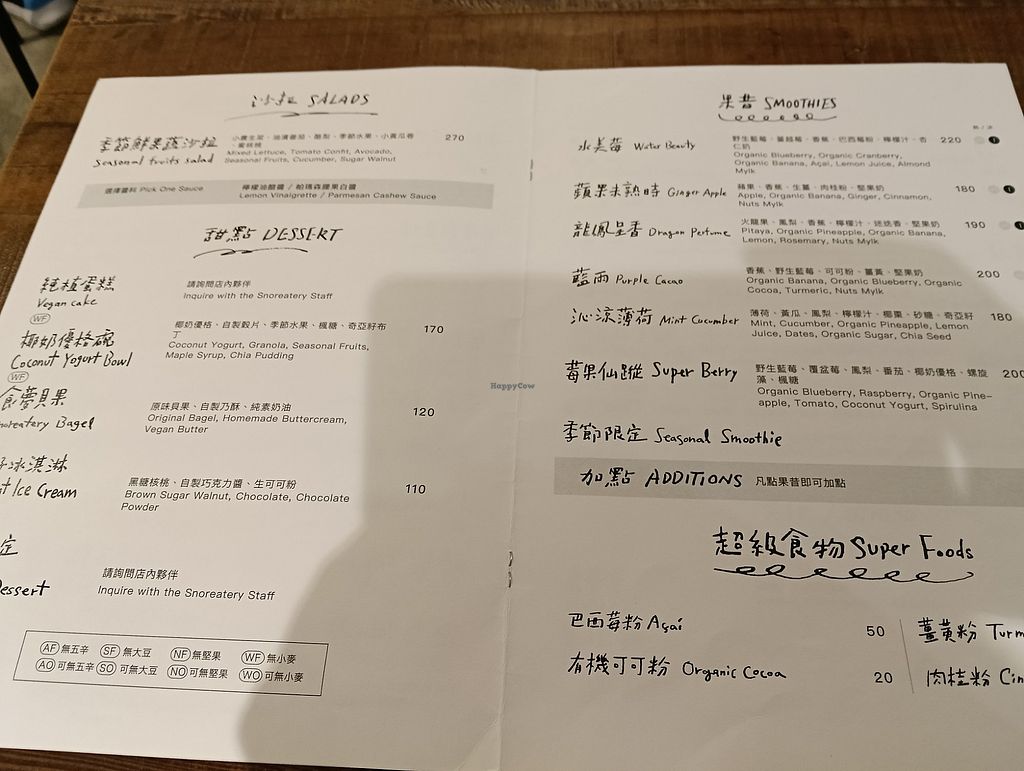 沙拉 SALADS
季節鮮果蔬沙拉
Seasonal fruits salad
270
Mixed Lettuce, Tomato Confit, Avocado,
Seasonal Fruits, Cucumber, Sugar Walnut
選擇醬料 Pick One Sauce
檸檬油醋醬 / 帕瑪森腰果白醬
Lemon Vinaigrette / Parmesan Cashew Sauce
甜點 DESSERT
純植蛋糕
Vegan cake
WF
請詢問店內夥伴
Inquire with the Snoreatery Staff
椰奶優格碗
Coconut Yogurt Bowl
WF
椰奶優格、自製穀片、季節水果、楓糖、奇亞籽布
丁
170
Coconut Yogurt, Granola, Seasonal Fruits,
Maple Syrup, Chia Pudding
食夢貝果
noreatery Bagel
原味貝果、自製乃酥、純素奶油
120
Original Bagel, Homemade Buttercream,
Vegan Butter
冰淇淋
t Ice Cream
黑糖核桃、自製巧克力醬、生可可粉
110
Brown Sugar Walnut, Chocolate, Chocolate
Powder
定
essert
請詢問店內夥伴
Inquire with the Snoreatery Staff
AF 無五辛 SF 無大豆 NF 無堅果 WF 無小麥
AO 可無五辛 SO 可無大豆 NO 可無堅果 WO 可無小麥
果昔 SMOOTHIES
水美莓 Water Beauty
野生藍莓、蔓越莓、香蕉、巴西莓粉、檸檬汁、杏
仁奶
220
Organic Blueberry, Organic Cranberry,
Organic Banana, Açai, Lemon Juice, Almond
Mylk
蘋果未熟時 Ginger Apple
蘋果、香蕉、生薑、肉桂粉、堅果奶
180
Apple, Organic Banana, Ginger, Cinnamon,
Nuts Mylk
龍鳳呈香 Dragon Perfume
火龍果、鳳梨、香蕉、檸檬汁、迷迭香、堅果奶
190
Pitaya, Organic Pineapple, Organic Banana,
Lemon, Rosemary, Nuts Mylk
藍雨 Purple Cacao
香蕉、野生藍莓、可可粉、薑黃、堅果奶
200
Organic Banana, Organic Blueberry, Organic
Cocoa, Turmeric, Nuts Mylk
沁涼薄荷 Mint Cucumber
薄荷、黃瓜、鳳梨、檸檬汁、椰棗、砂糖、奇亞籽
180
Mint, Cucumber, Organic Pineapple, Lemon
Juice, Dates, Organic Sugar, Chia Seed
莓果仙蹤 Super Berry
野生藍莓、覆盆莓、鳳梨、番茄、椰奶優格、螺旋
藻、楓糖
200
Organic Blueberry, Raspberry, Organic Pine-
apple, Tomato, Coconut Yogurt, Spirulina
季節限定 Seasonal Smoothie
加點 ADDITIONS 凡點果昔即可加點
超級食物 Super Foods
巴西莓粉 Açaí 50
薑黃粉 Turm
有機可可粉 Organic Cocoa 20
肉桂粉 Cin
HappyCow